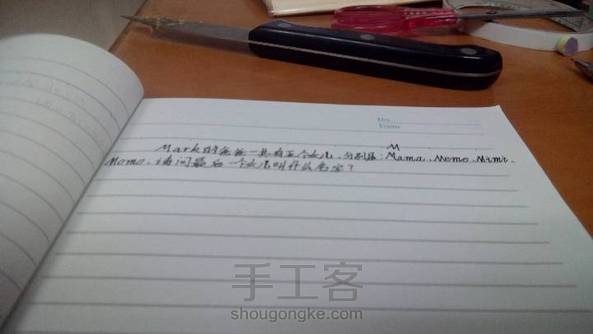 M
Mark的爸爸一共有五个女儿，分别是：Mama、Meme、Mimi、
Momo，请问最后一个女儿叫什么名字？
手工客
shougongke.com